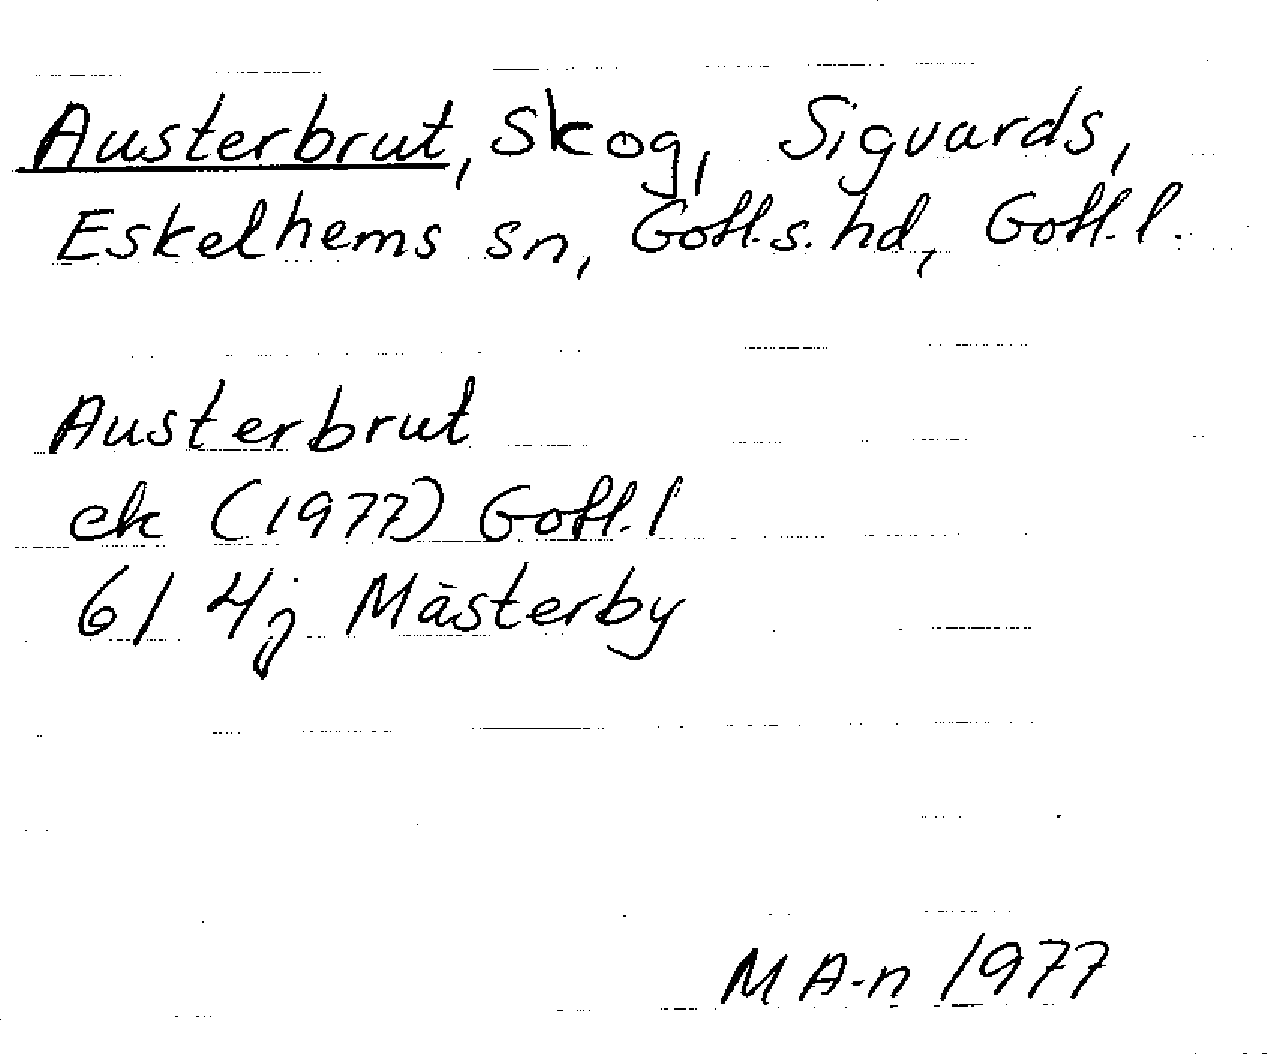 Austerbrut, Skog, Sigvards,
Eskelhems sn, Gotl.s. hd, Gotl. l.
Austerbrut
ek (1977) Gotl. l
6I 4j Mästerby
M A-n 1977